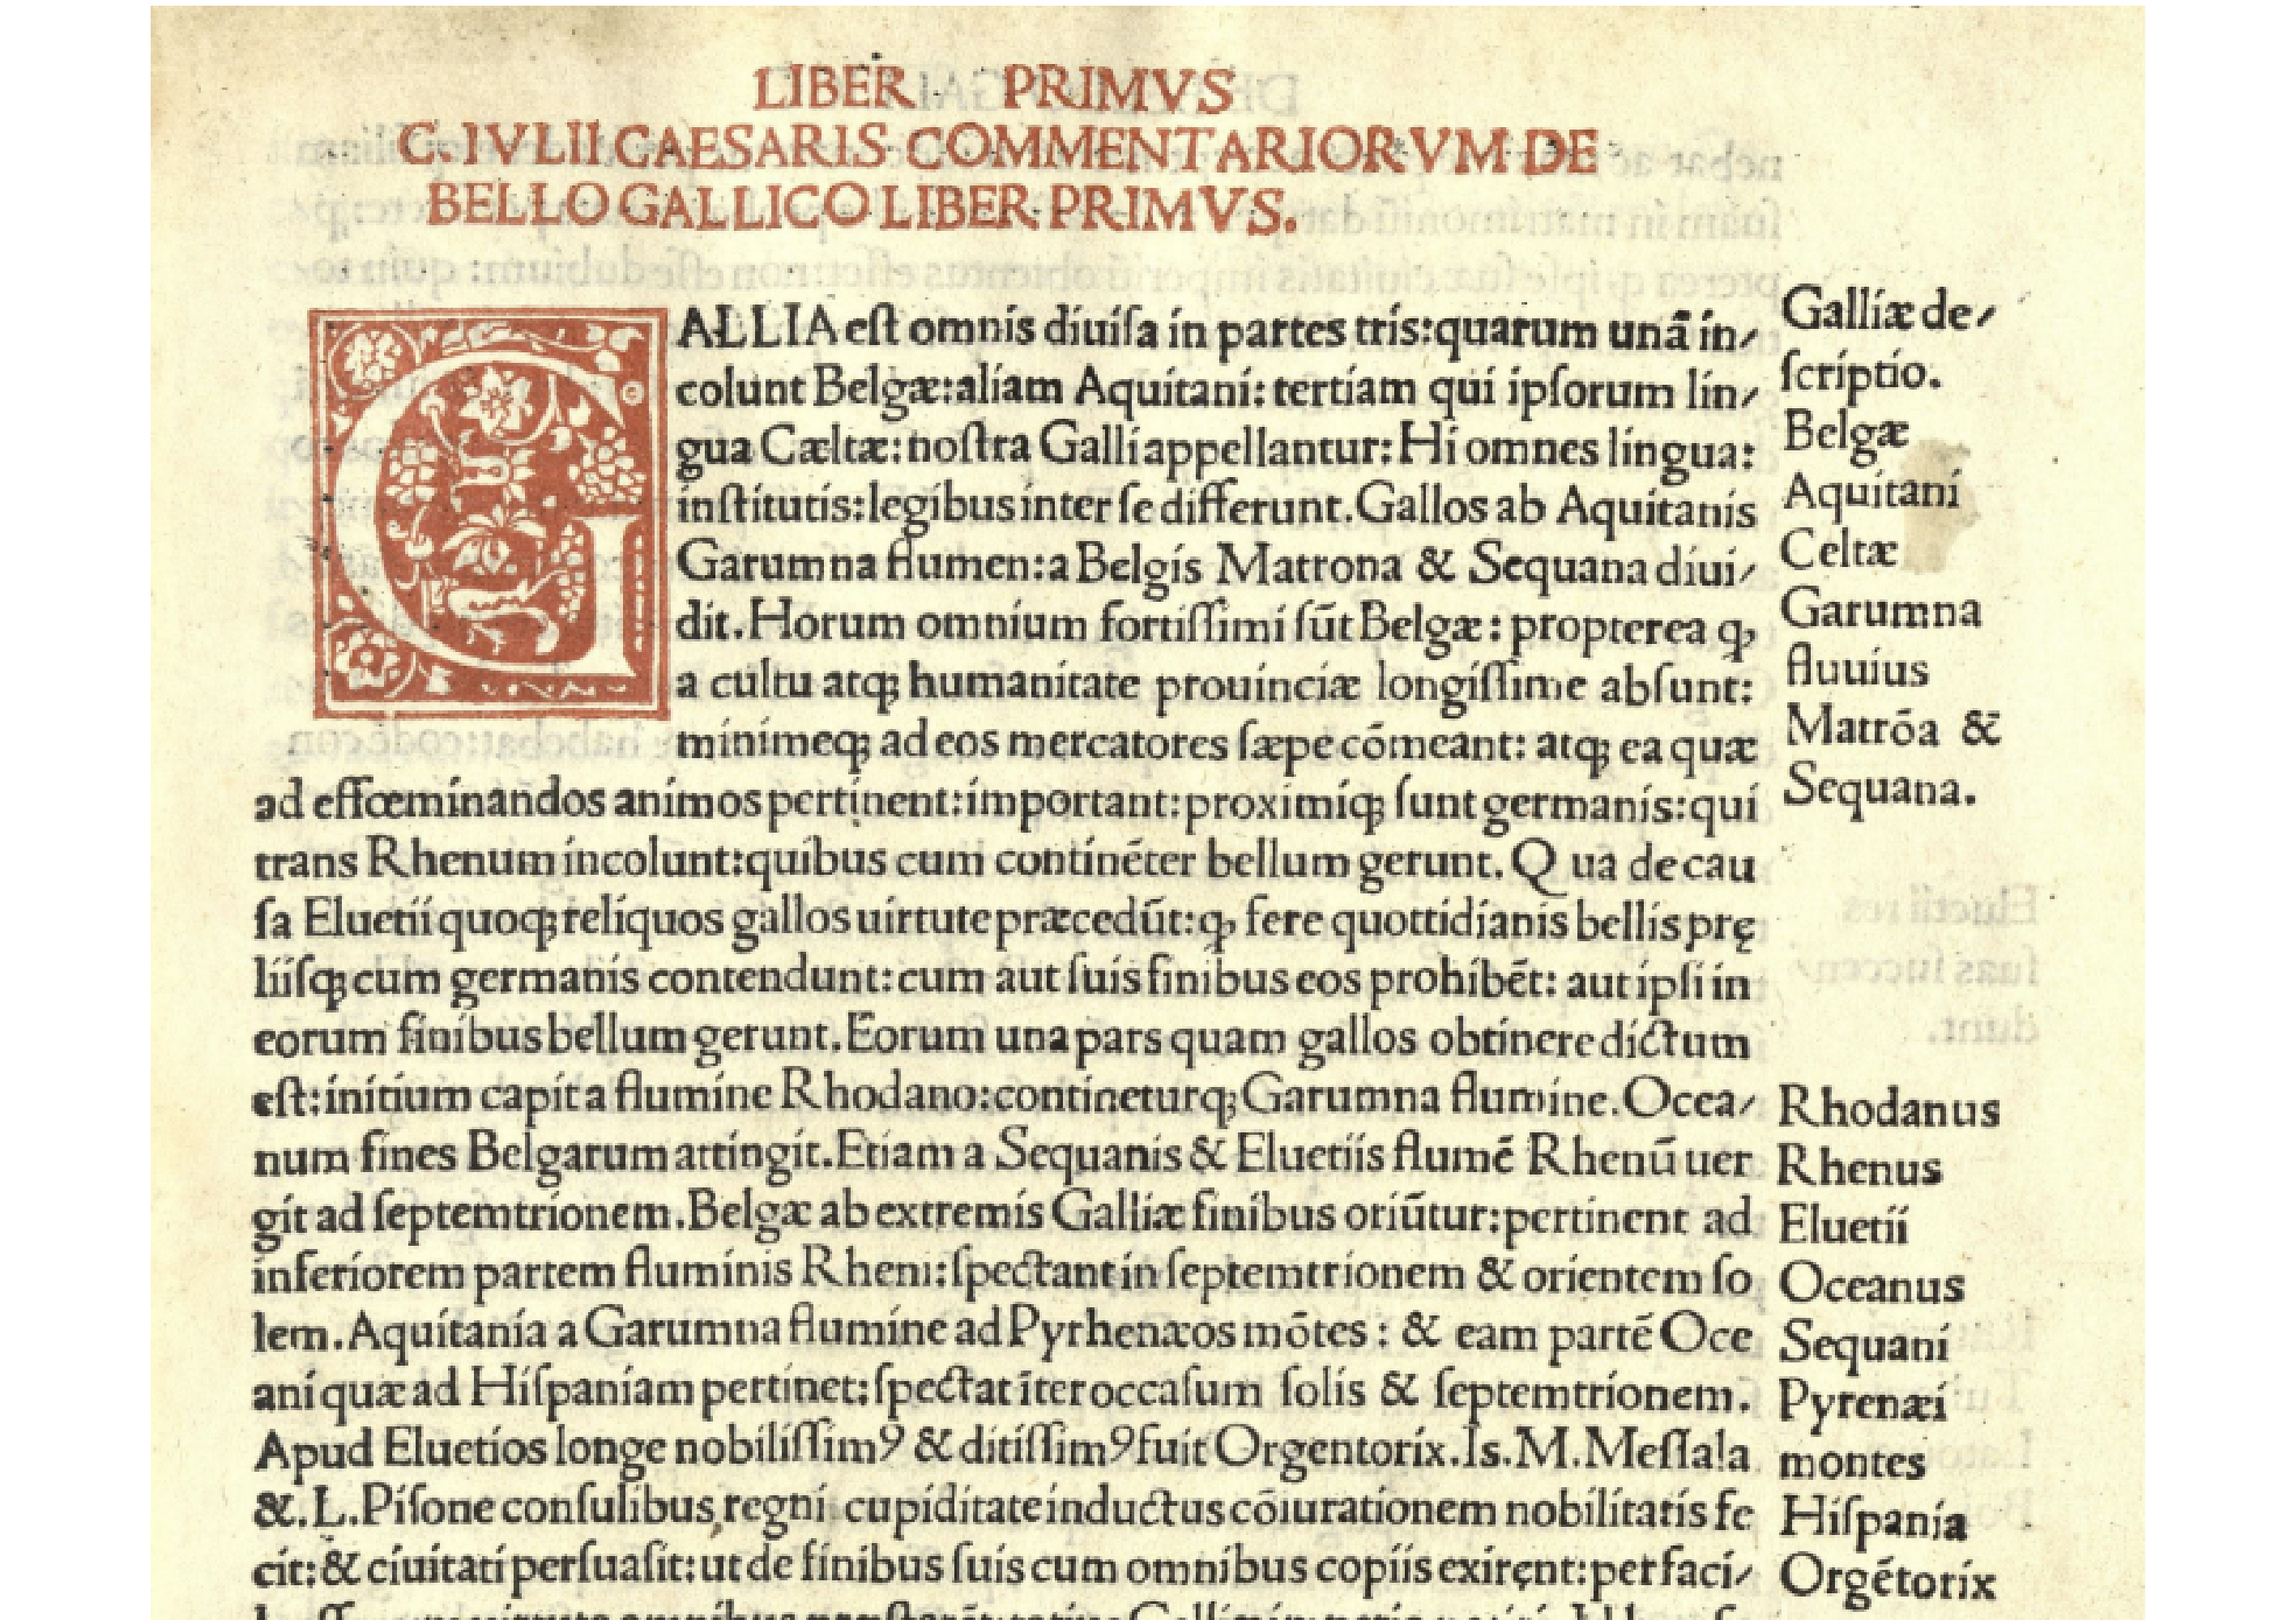 LIBER PRIMVS
C. IVLII CAESARIS COMMENTARIORVM DE
BELLO GALLICO LIBER PRIMVS.
GALLIA eſt omnis diuiſa in partes tris:quarum unā in/
colunt Belgæ:aliam Aquitani: tertiam qui ipſorum lin/
gua Cæltæ: noſtra Galli appellantur: Hi omnes lingua:
inſtitutis:legibus inter ſe differunt. Gallos ab Aquitanis
Garumna flumen: a Belgis Matrona & Sequana diui/
dit. Horum omnium fortiſſimi ſūt Belgæ: propterea ꝙ
a cultu atq; humanitate prouinciæ longiſſime abſunt:
minimeq; ad eos mercatores ſæpe cōmeant: atq; ea quæ
ad effœminandos animos pertinent:important:proximiq; ſunt germanis:qui
trans Rhenum incolunt:quibus cum continēter bellum gerunt. Qua de cau
ſa Eluetii quoq; reliquos gallos uirtute præcedūt:ꝙ fere quottidianis bellis prę
liiſq; cum germanis contendunt: cum aut ſuis finibus eos prohibēt: aut ipſi in
eorum finibus bellum gerunt. Eorum una pars quam gallos obtinere dictum
eſt: initium capit a flumine Rhodano:contineturq; Garumna flumine. Ocea/
num fines Belgarum attingit. Etiam a Sequanis & Eluetiis flumē Rhenū uer
git ad ſeptemtrionem. Belgæ ab extremis Galliæ finibus oriūtur:pertinent ad
inferiorem partem fluminis Rheni: ſpectant in ſeptemtrionem & orientem ſo
lem. Aquitania a Garumna flumine ad Pyrhenæos mōtes : & eam partē Oce
ani quæ ad Hiſpaniam pertinet: ſpectat īter occaſum ſolis & ſeptemtrionem.
Apud Eluetios longe nobiliſſimꝰ & ditiſſimꝰ fuit Orgentorix. Is. M. Meſſala
&. L. Piſone conſulibus regni cupiditate inductus cōiurationem nobilitatis fe
cit: & ciuitati perſuaſit: ut de finibus ſuis cum omnibus copiis exirent: perfaci/
Galliæ de/
ſcriptio.
Belgæ
Aquitani
Celtæ
Garumna
fluuius
Matrōa &
Sequana.
Rhodanus
Rhenus
Eluetii
Oceanus
Sequani
Pyrenæi
montes
Hiſpania
Orgētorix